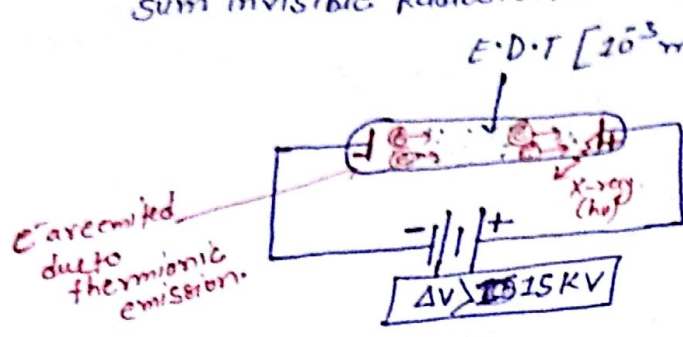 Sum invisible Radiation
E.D.T [10⁻³ m
e⁻ are emited
due to
thermionic
emission.
X-ray
(hν)
- +
ΔV > 15 KV